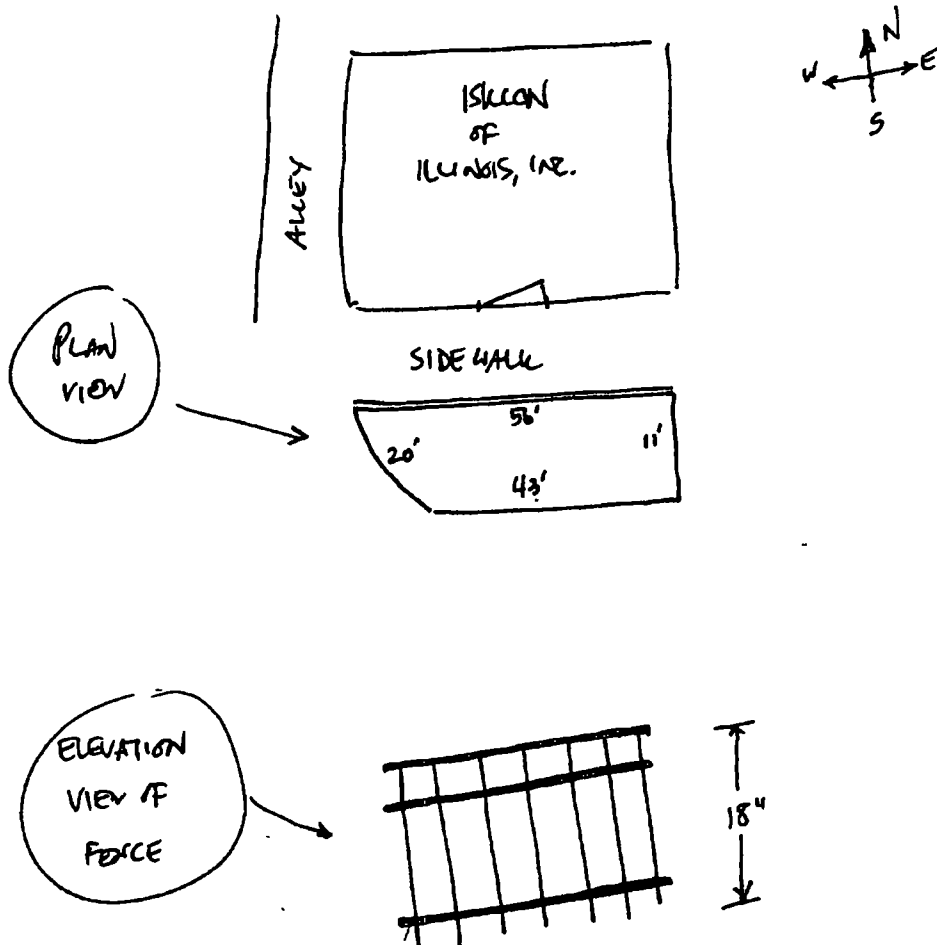 N
W
E
S
ISKCON
OF
ILLINOIS, INC.
ALLEY
PLAN
VIEW
SIDEWALK
56'
20'
11'
43'
ELEVATION
VIEW OF
FENCE
18"